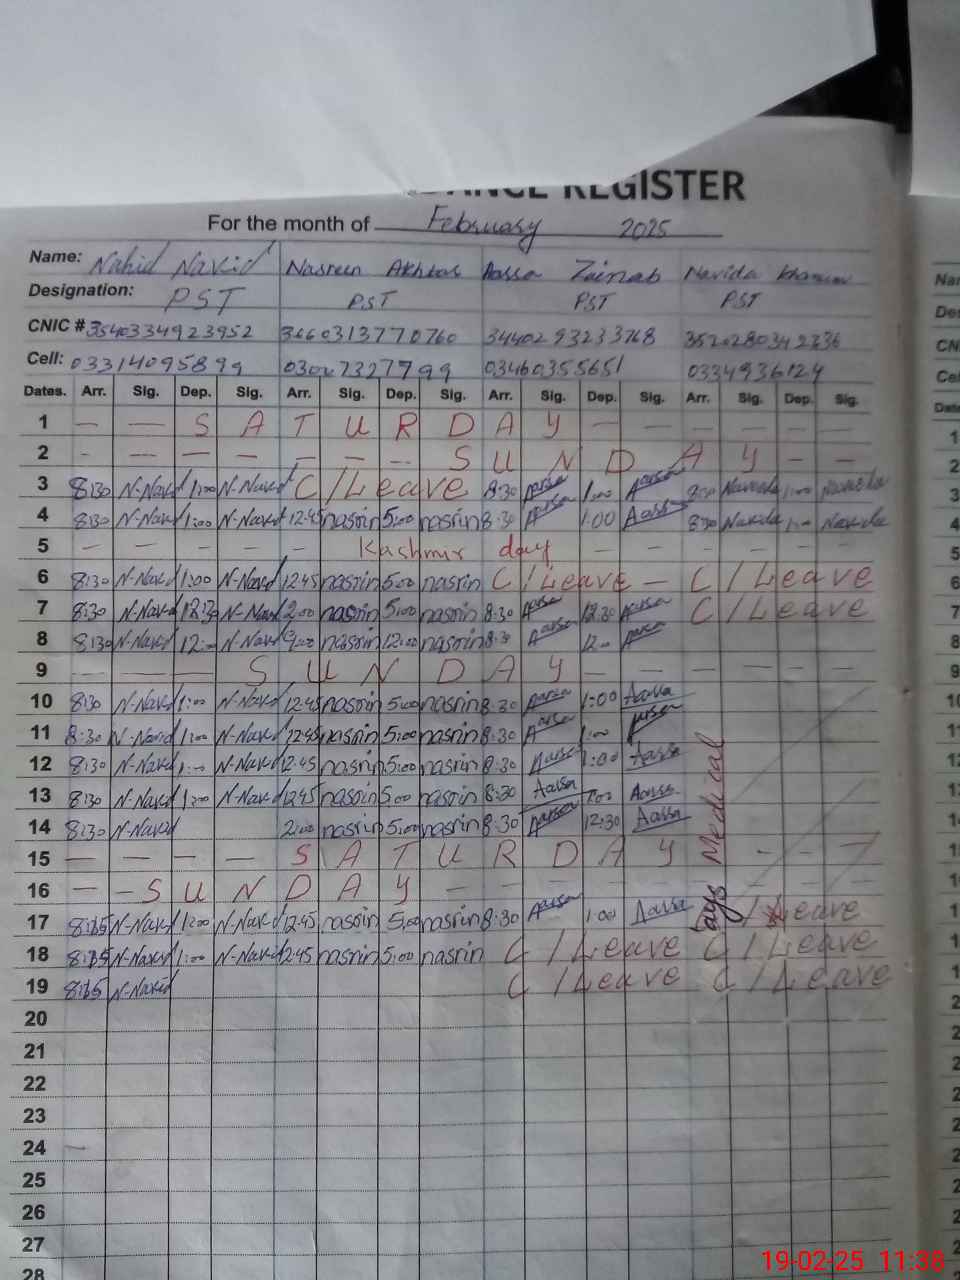 DANCE REGISTER
For the month of February 2025
Name: Nahid Navid Nasreen Akhtar Aassa Zainab Navida Khanum
Designation: PST PST PST PST
CNIC # 3540334923952 3660313770760 3440293233768
Cell: 03314095899 03460355651 0334936124
Dates. Arr. Sig. Dep. Sig. Arr. Sig. Dep. Sig. Arr. Sig. Dep. Sig. Arr. Sig. Dep. Sig.
1 — — S A T U R D A Y — — — — —
2 - — — — — — — S U N D A Y — —
3 8:30 N-Navid 1:00 N-Navid C/Leave 8:30 Aassa 1:00 Aassa 8:30 Naveeda 1:00
4 8:30 N-Navid 1:00 N-Navid 12:45 nasrin 5:00 nasrin 8:30 Aassa 1:00 Aassa 8:30 Navida 1:00 Navida
5 — — — — — Kashmir day — — — — —
6 8:30 N-Navid 1:00 N-Navid 12:45 nasrin 5:00 nasrin C/Leave — C/Leave
7 8:30 N-Navid 12:30 N-Navid 2:00 nasrin 5:00 nasrin 8:30 Aassa 12:30 Aassa C/Leave
8 8:30 N-Navid 12:00 N-Navid 9:00 nasrin 12:00 nasrin 8:30 Aassa 12:00 Aassa
9 — — — S U N D A Y — — — — —
10 8:30 N-Navid 1:00 N-Navid 12:45 nasrin 5:00 nasrin 8:30 Aassa 1:00 Aassa
11 8:30 N-Navid 1:00 N-Navid 12:45 nasrin 5:00 nasrin 8:30 Aassa 1:00 Aassa
12 8:30 N-Navid 1:00 N-Navid 12:45 nasrin 5:00 nasrin 8:30 Aassa 1:00 Aassa
13 8:30 N-Navid 1:00 N-Navid 12:45 nasrin 5:00 nasrin 8:30 Aassa 1:00 Aassa
14 8:30 N-Navid 2:00 nasrin 5:00 nasrin 8:30 Aassa 12:30 Aassa
days Medical
15 — — — — S A T U R D A Y - - —
16 — - S U N D A Y — — — — —
17 8:15 N-Navid 1:00 N-Navid 12:45 nasrin 5:00 nasrin 8:30 Aassa 1:00 Aassa /Leave
18 8:15 N-Navid 1:00 N-Navid 12:45 nasrin 5:00 nasrin C/Leave C/Leave
19 8:15 N-Navid C/Leave C/Leave
20
21
22
23
24 —
25
26
27
28
19-02-25 11:38